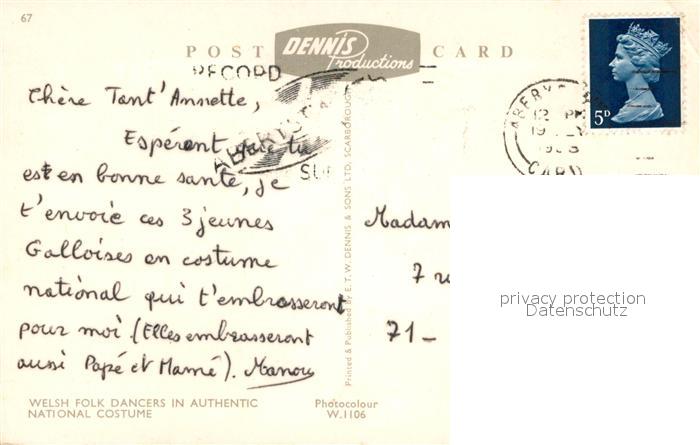 67
POST DENNIS Productions CARD
RECORD
ABERYST
5D
12 PM
CARD
Chère Tant'Annette,
Espérant que tu
est en bonne santé, je
t'envoie ces 3 jeunes
Galloises en costume
national qui t'embrasseront
pour moi. (Elles embrasseront
aussi Papé et Mamé). Manou
Printed & Published by E. T. W. DENNIS & SONS LTD, SCARBOROUGH
Madam
7
71-
privacy protection
Datenschutz
WELSH FOLK DANCERS IN AUTHENTIC
NATIONAL COSTUME
Photocolour
W.1106